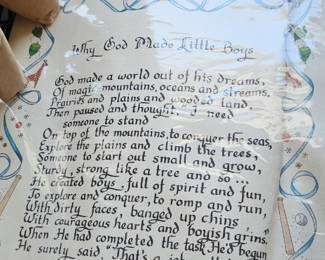 Why God Made Little Boys
God made a world out of his dreams,
Of magic mountains, oceans and streams,
Prairies and plains and wooded land,
Then paused and thought, "I need
someone to stand
On top of the mountains, to conquer the seas,
Explore the plains and climb the trees,
Someone to start out small and grow,
Sturdy, strong like a tree and so...
He created boys, full of spirit and fun,
To explore and conquer, to romp and run,
With dirty faces, banged up chins
With courageous hearts and boyish grins.
When He had completed the task He'd begun
He surely said, "That's a job